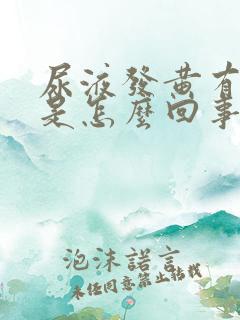 尿液發黃有
是怎麼回事
泡沫諾言
未经同意禁止转载